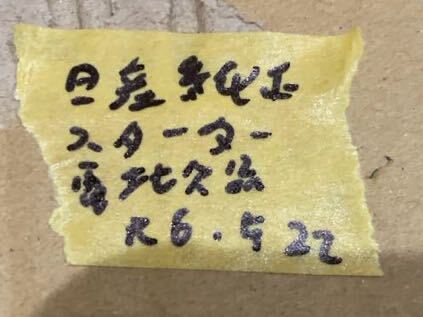 日産純正
スターター
電池交換
R6.5 22